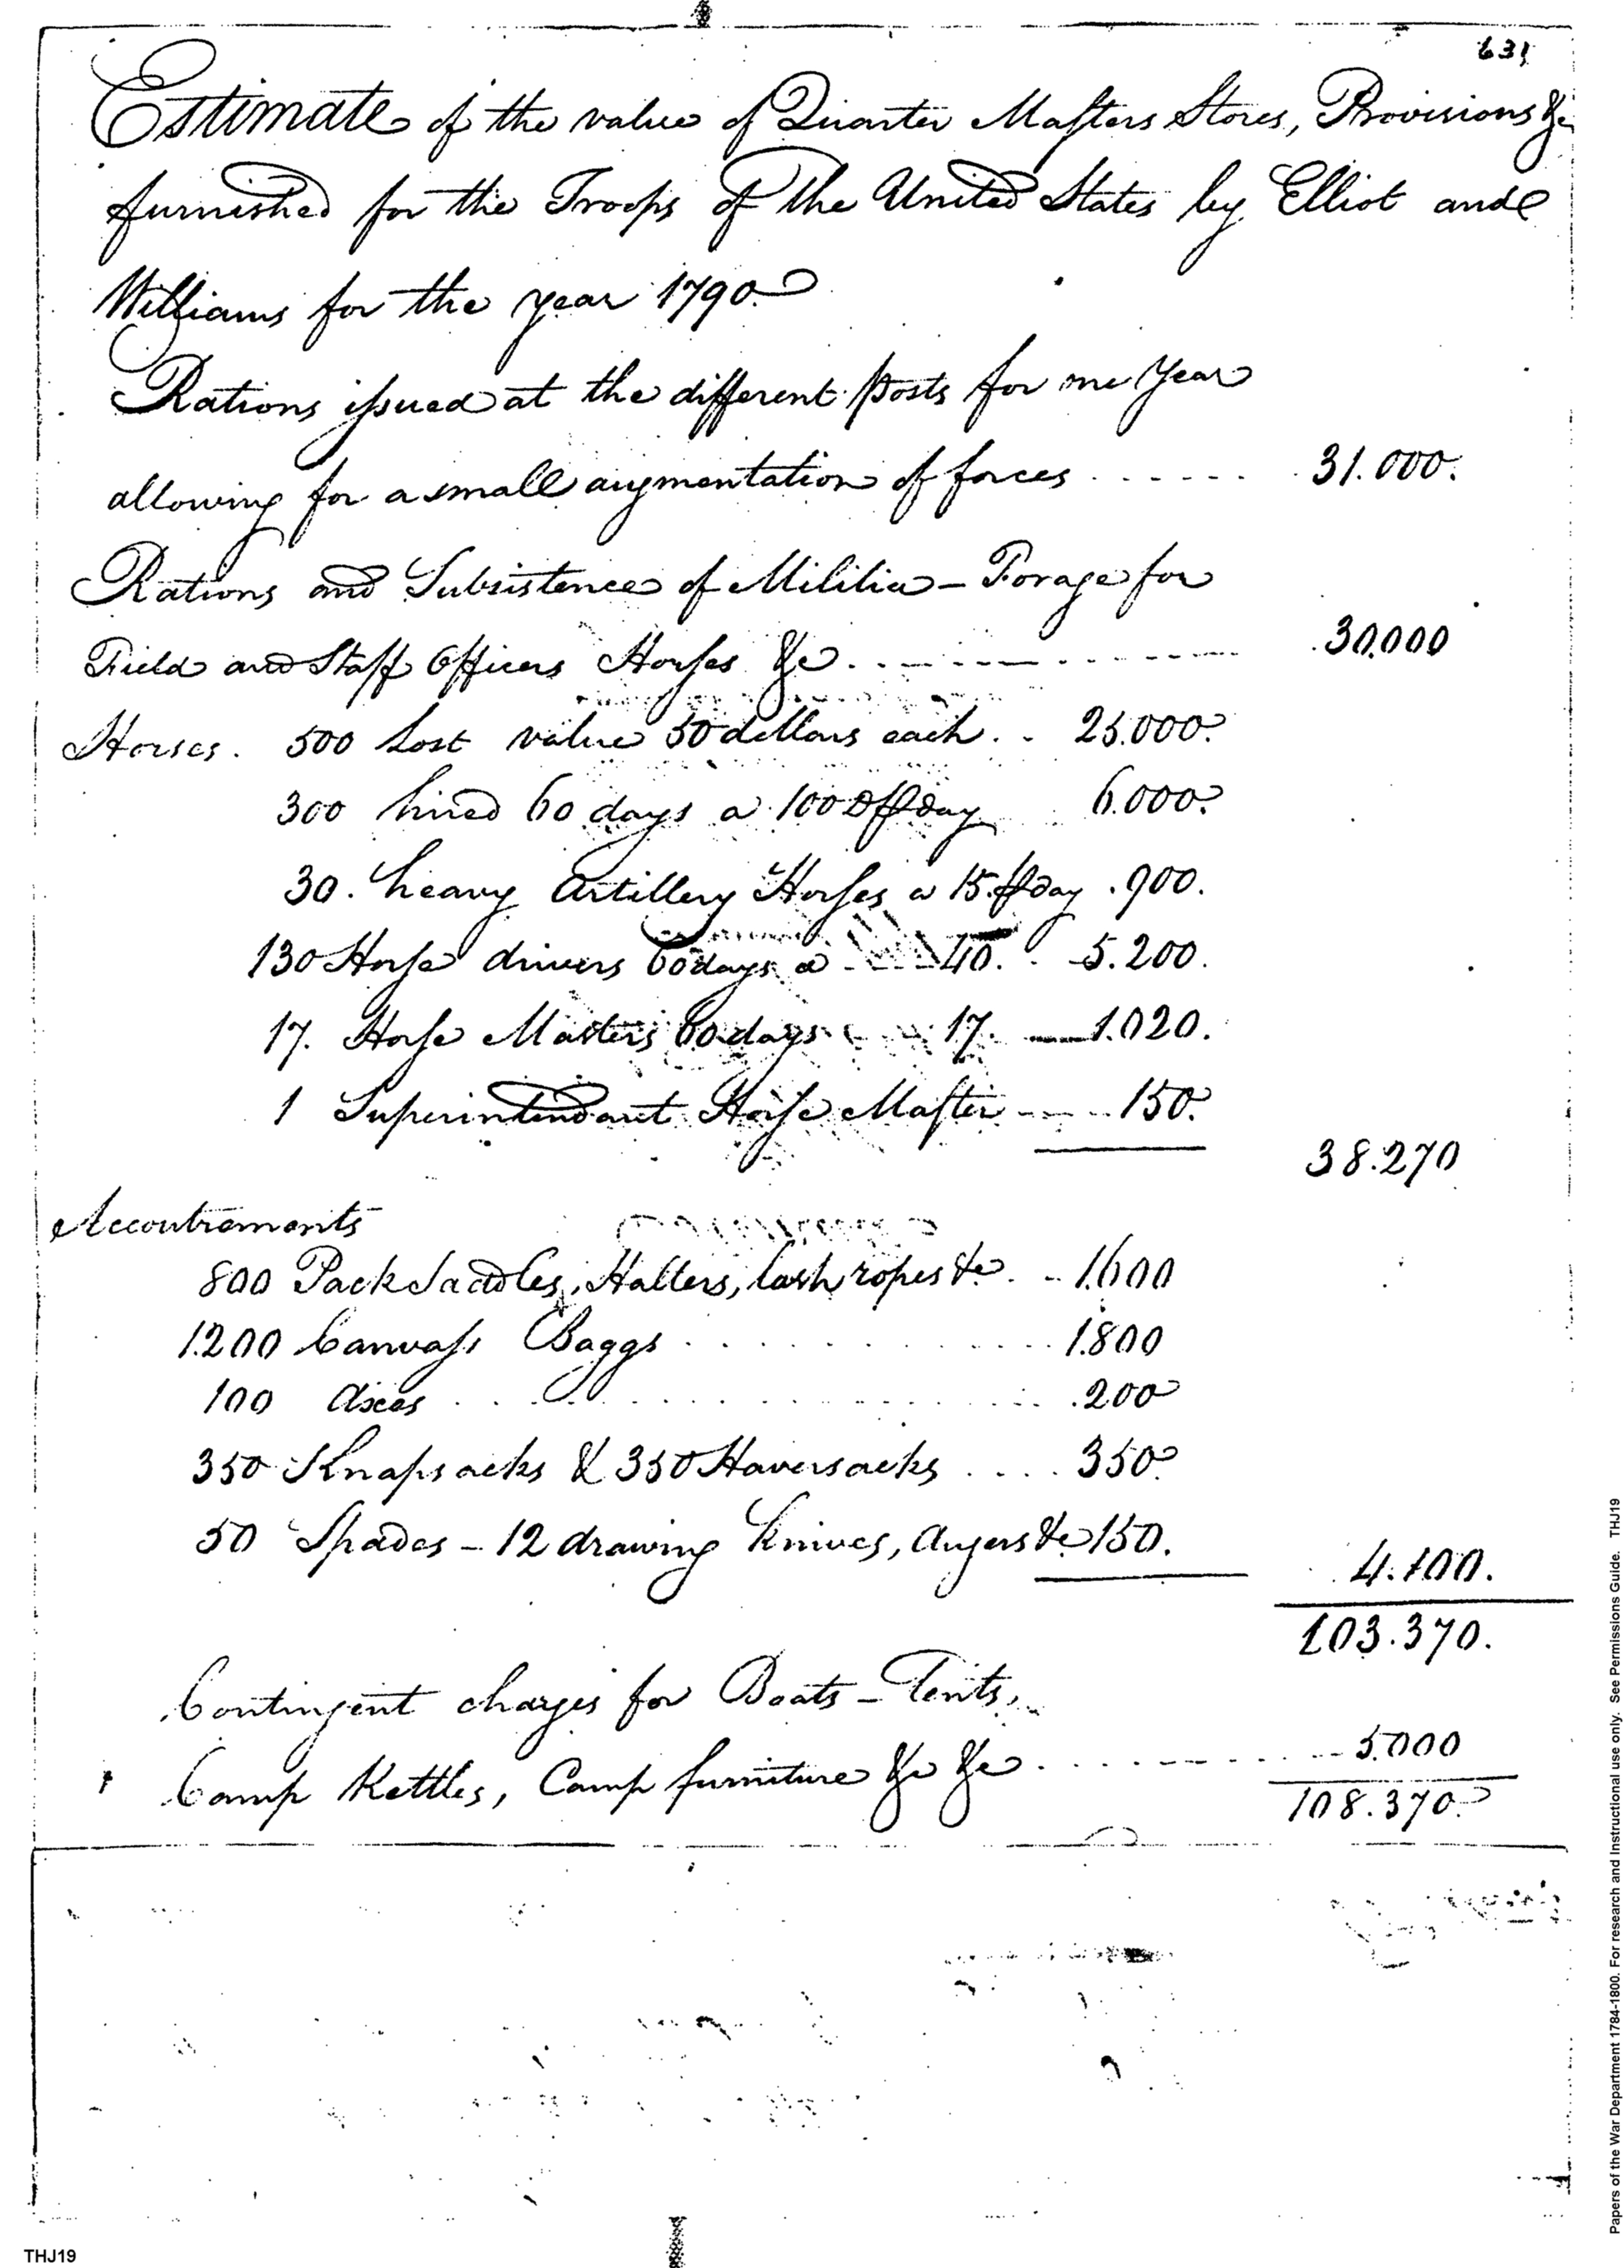 631
Estimate of the value of Quarter Masters Stores, Provisions &c
furnished for the Troops of the United States by Elliot and
Williams for the year 1790.
Rations issued at the different posts for one Year
allowing for a small augmentation of forces ...... 31.000.
Rations and Subsistence of Militia - Forage for
Field and Staff Officers Horses &c. ........ 30.000
Horses. 500 lost value 50 dollars each. . 25.000.
300 hired 60 days a 100 D p day 6.000.
30. heavy Artillery Horses a 15. p day .900.
130 Horse drivers 60 days a 40. . 5.200.
17. Horse Masters 60 days 17. 1.020.
1 Superintendant Horse Master 150.
38.270
Accoutrements
800 Pack Saddles, Halters, lash ropes &c. .. 1.600
1.200 Canvass Baggs .......... 1.800
100 Axes .......... .200
350 Knapsacks & 350 Haversacks .... 350.
50 Spades - 12 drawing Knives, Augers &c 150.
4.100.
103.370.
Contingent charges for Boats - Tents,
Camp Kettles, Camp furniture &c &c ........ 5.000
108.370.
THJ19
Papers of the War Department 1784-1800. For research and instructional use only. See Permissions Guide. THJ19